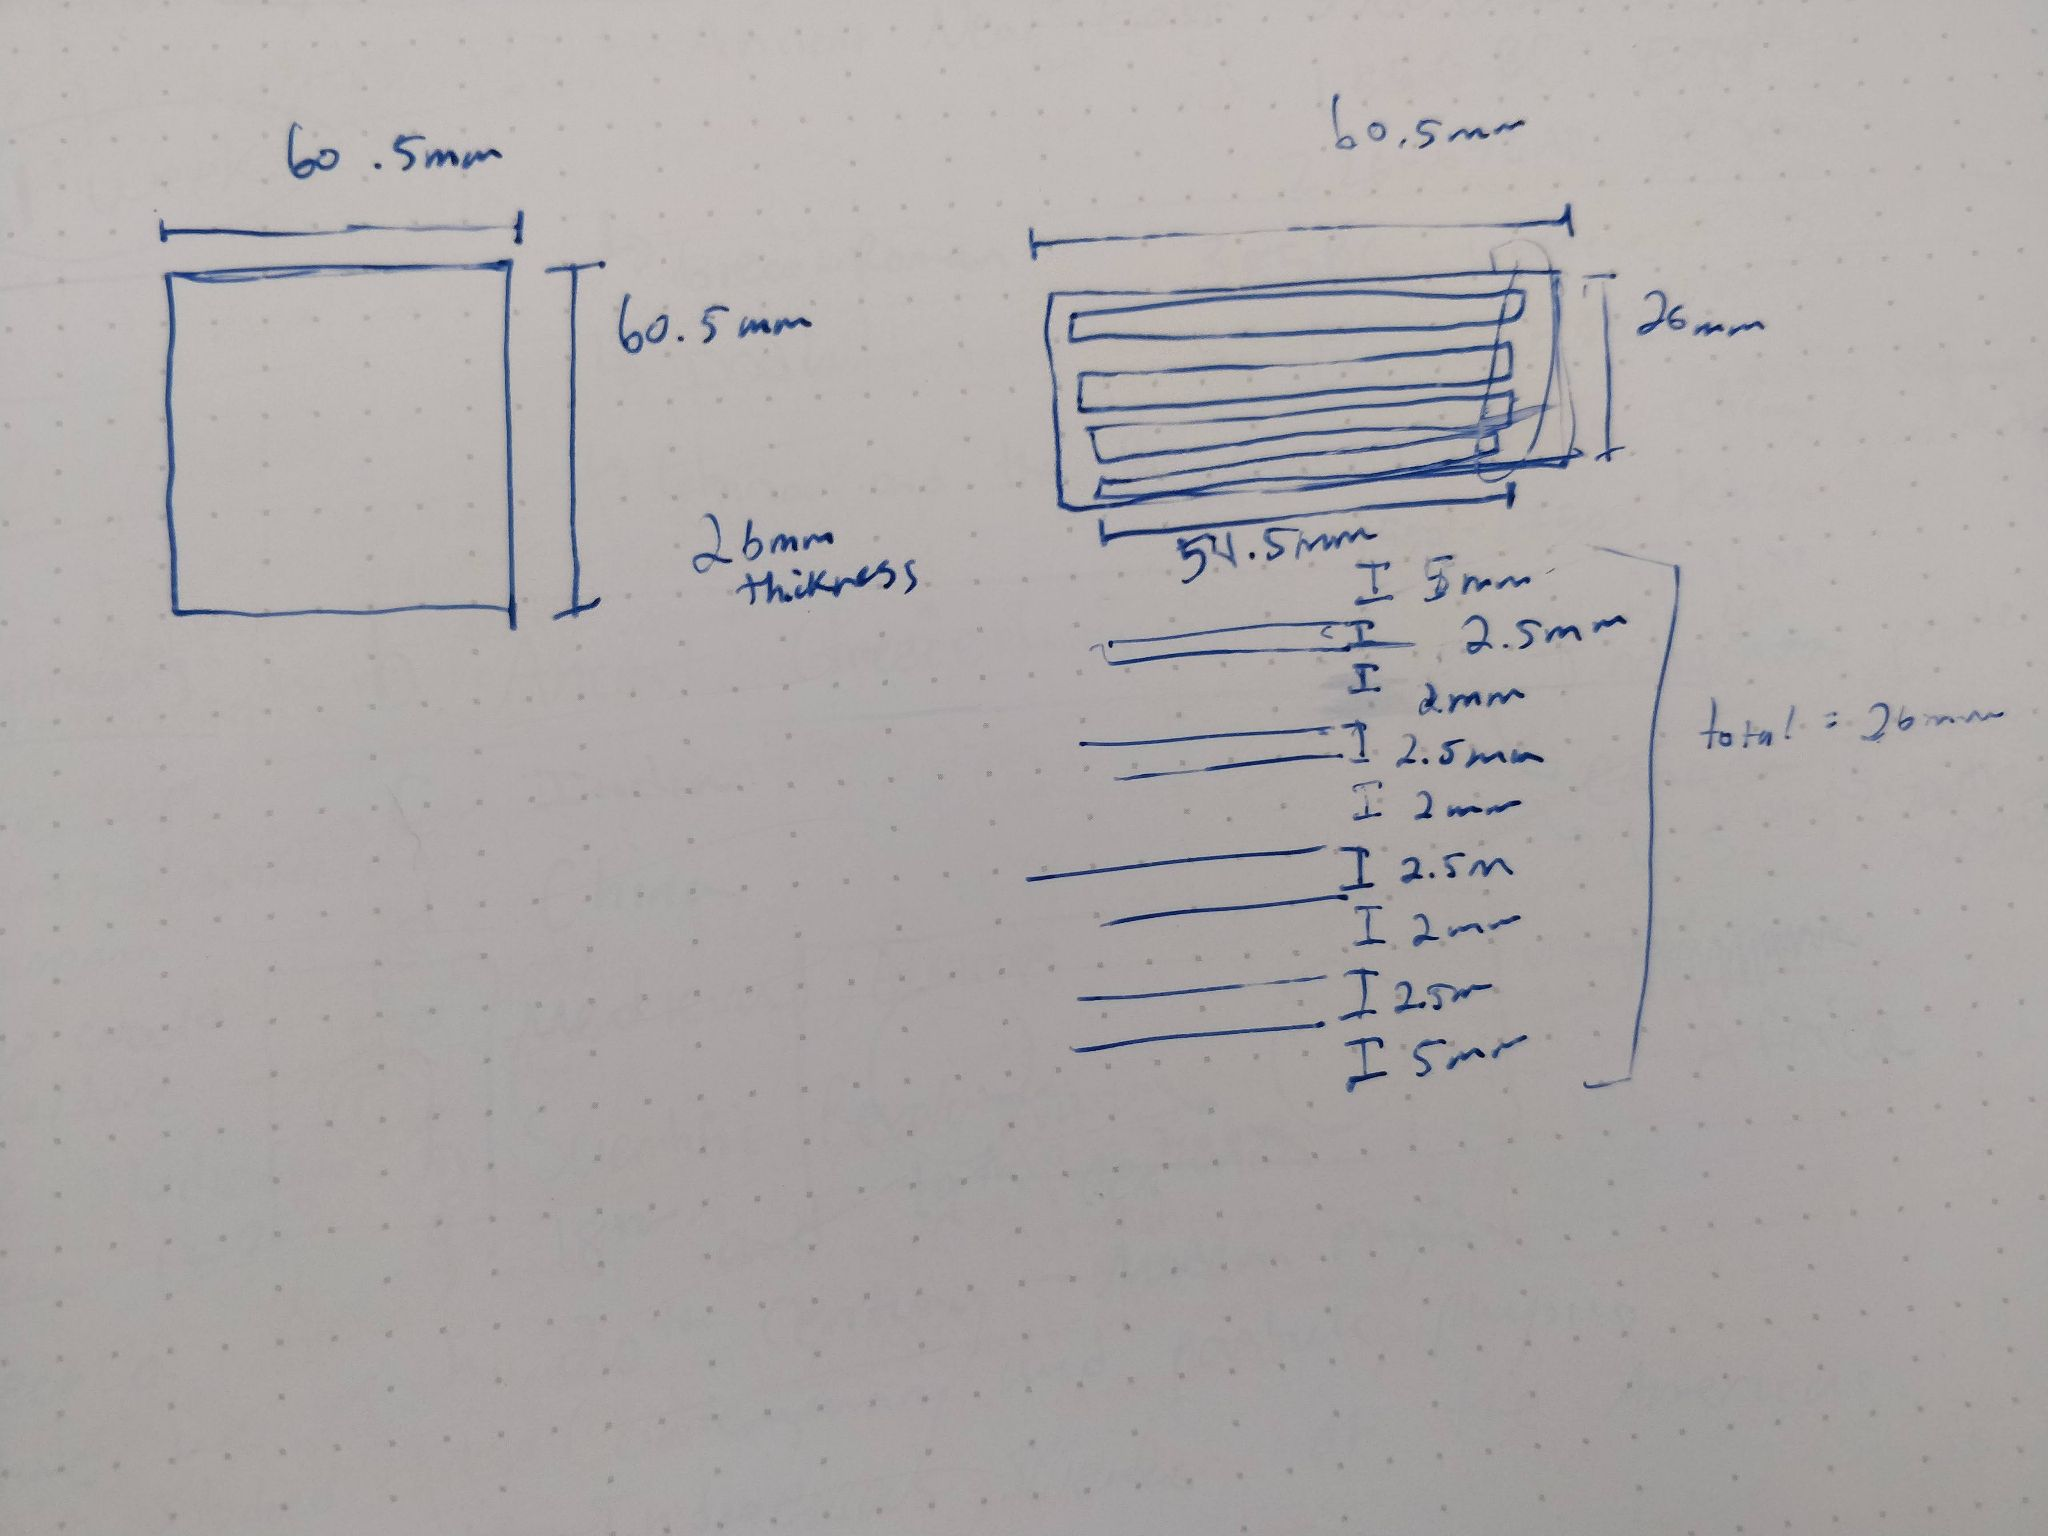 60.5mm
60.5mm
26mm
thickness
60.5mm
26mm
54.5mm
5mm
2.5mm
2mm
2.5mm
2mm
2.5m
2mm
2.5m
5mm
total = 26mm